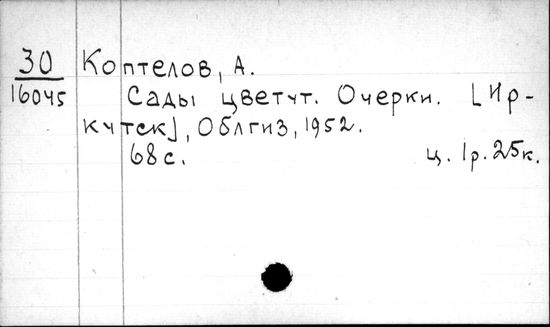 30 Коптелов, А.
16045 Сады цветут. Очерки. [Ир-
кутск], Облгиз, 1952.
68 с. ц. 1р. 25к.